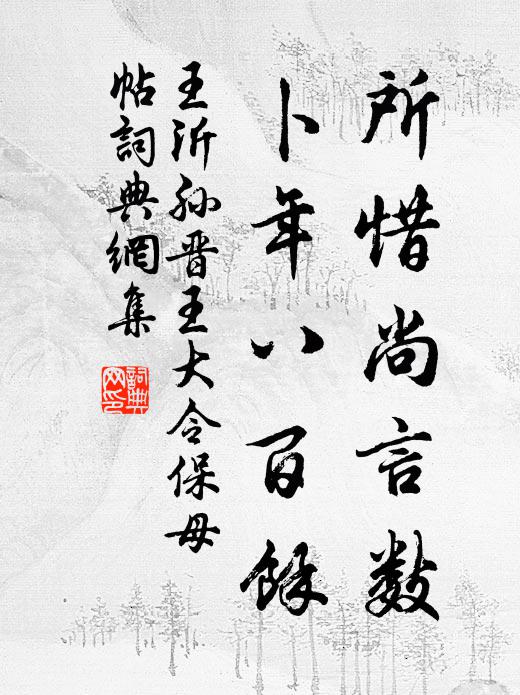 所惜尚言數
卜年八百餘
王沂孙晋王大令保母
帖詞典網集
詞典
网印